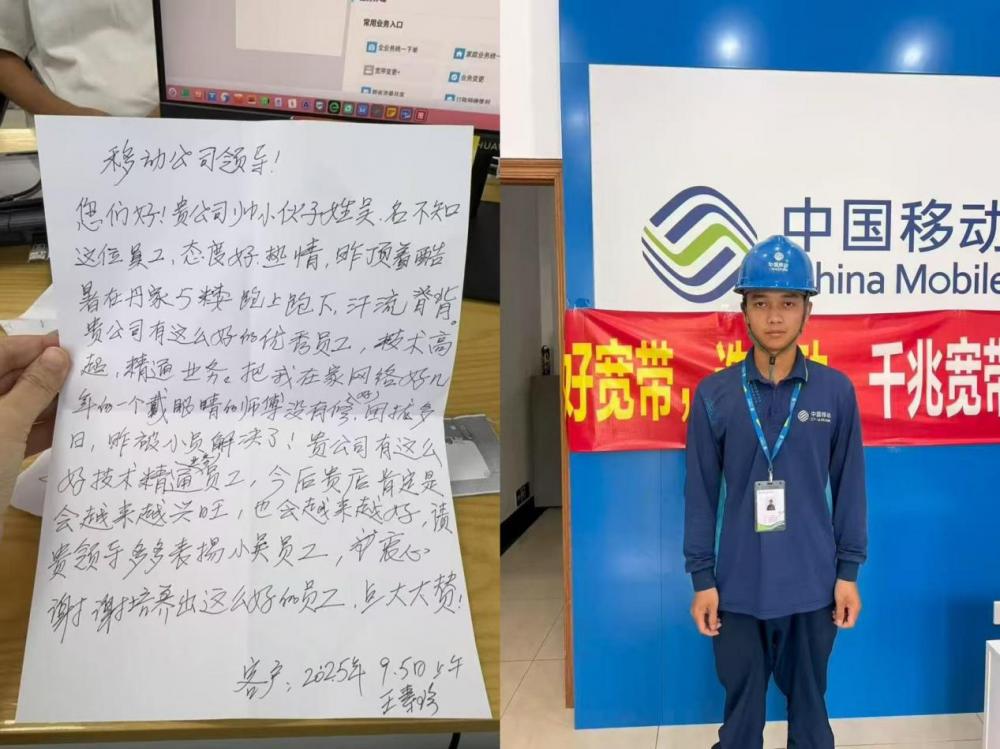 常用业务入口
全业务统一下单
家庭业务统一
宽带变更
业务变更
HUAW
移动公司领导！
您们好！贵公司帅小伙子姓吴，名不知
这位员工，态度好热情，昨顶着酷
暑在丹家5楼跑上跑下，汗流脊背。
贵公司有这么好的优秀员工，技术高
超，精通业务。把我在家网络好几
年的一个戴眼睛的师傅没有修好，困扰多
日，昨被小吴解决了！贵公司有这么
好技术精通业务员工，今后贵店肯定是
会越来越兴旺，也会越来越好，请
贵领导多多表揚小吴员工，衷心
谢谢培养出这么好的员工，点大大赞！
客户：2025年 9.5日上午
中国移动
China Mobile
好宽带，选 千兆宽带
中国移动
中国移动